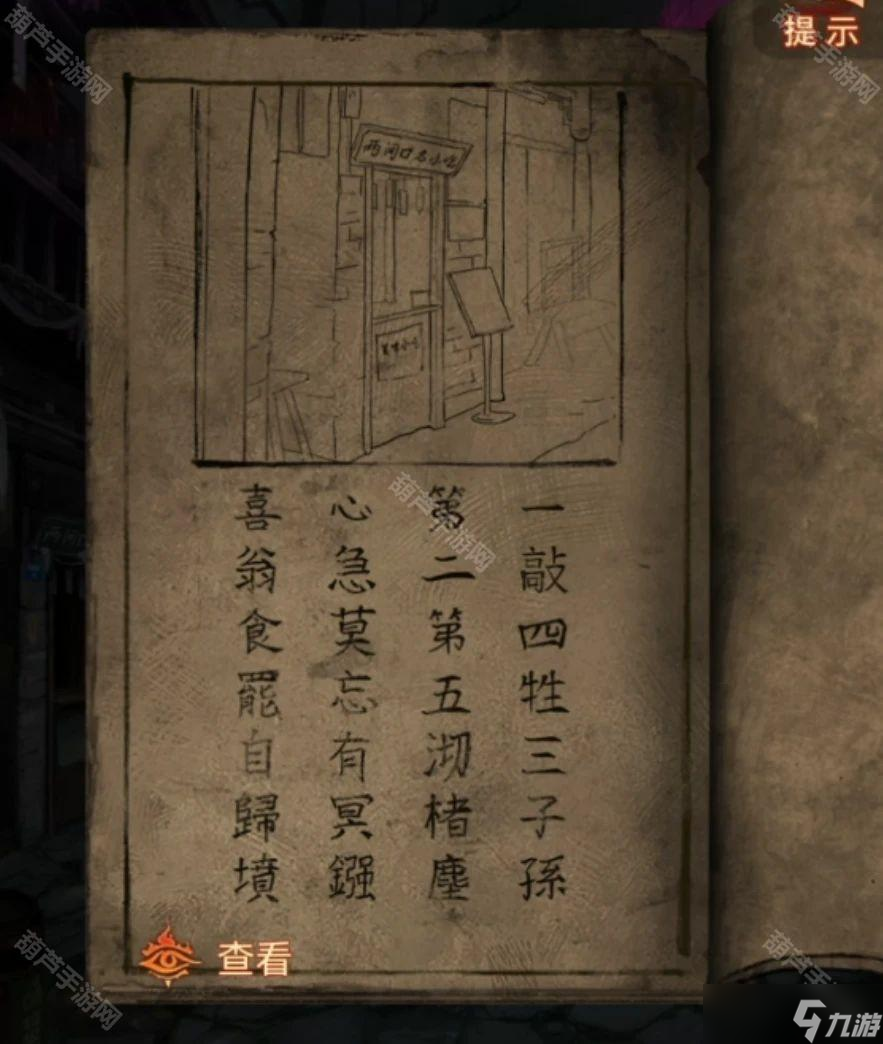 提示
两间口名小吃
一敲四牲三子孫
第二第五沏楮塵
心急莫忘有冥鏹
喜翁食罷自歸墳
查看
葫芦手游网
葫芦手游网
葫芦手游网
葫芦手游网
葫芦手游网
九游